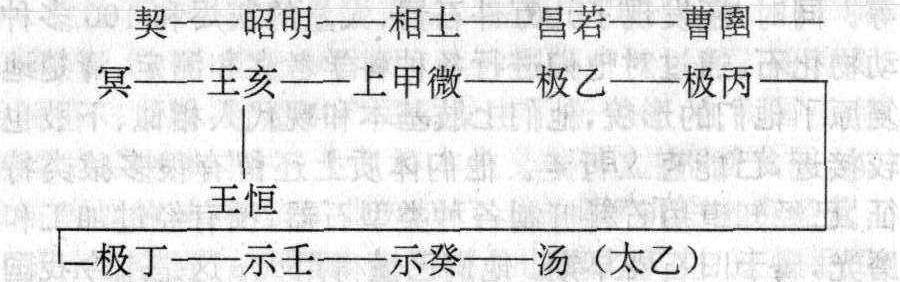 契——昭明——相土——昌若——曹圉
冥——王亥——上甲微——极乙——极丙
王恒
极丁——示壬——示癸——汤（太乙）